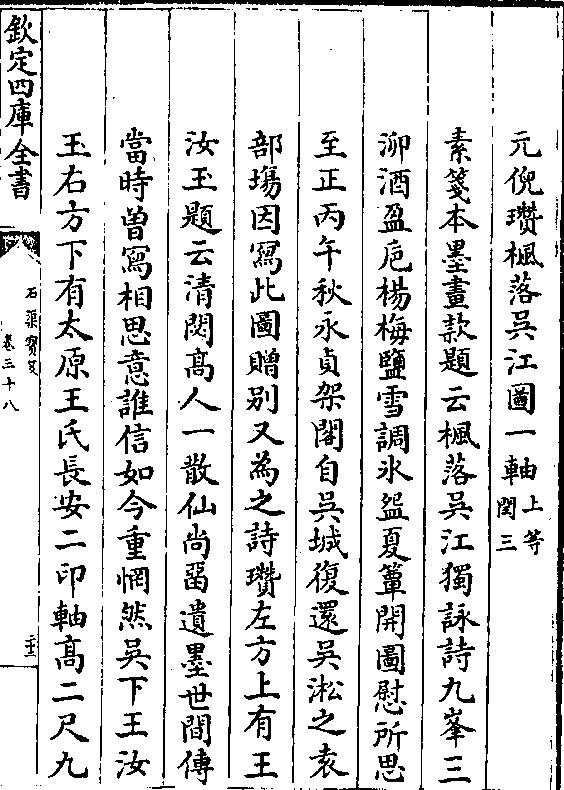 元倪瓚楓落吳江圖一軸上等閏三
素箋本墨畫款題云楓落吳江獨詠詩九峯三
泖酒盈巵楊梅鹽雪調氷盌夏簟開圖慰所思
至正丙午秋永貞架閣自吳城復還吳淞之袁
部塲因寫此圖贈别又為之詩瓚左方上有王
汝玉題云清閟髙人一散仙尚留遺墨世間傳
當時曽寫相思意誰信如今重惘然吳下王汝
玉右方下有太原王氏長安二印軸髙二尺九
欽定四庫全書
石渠寳笈
卷三十八